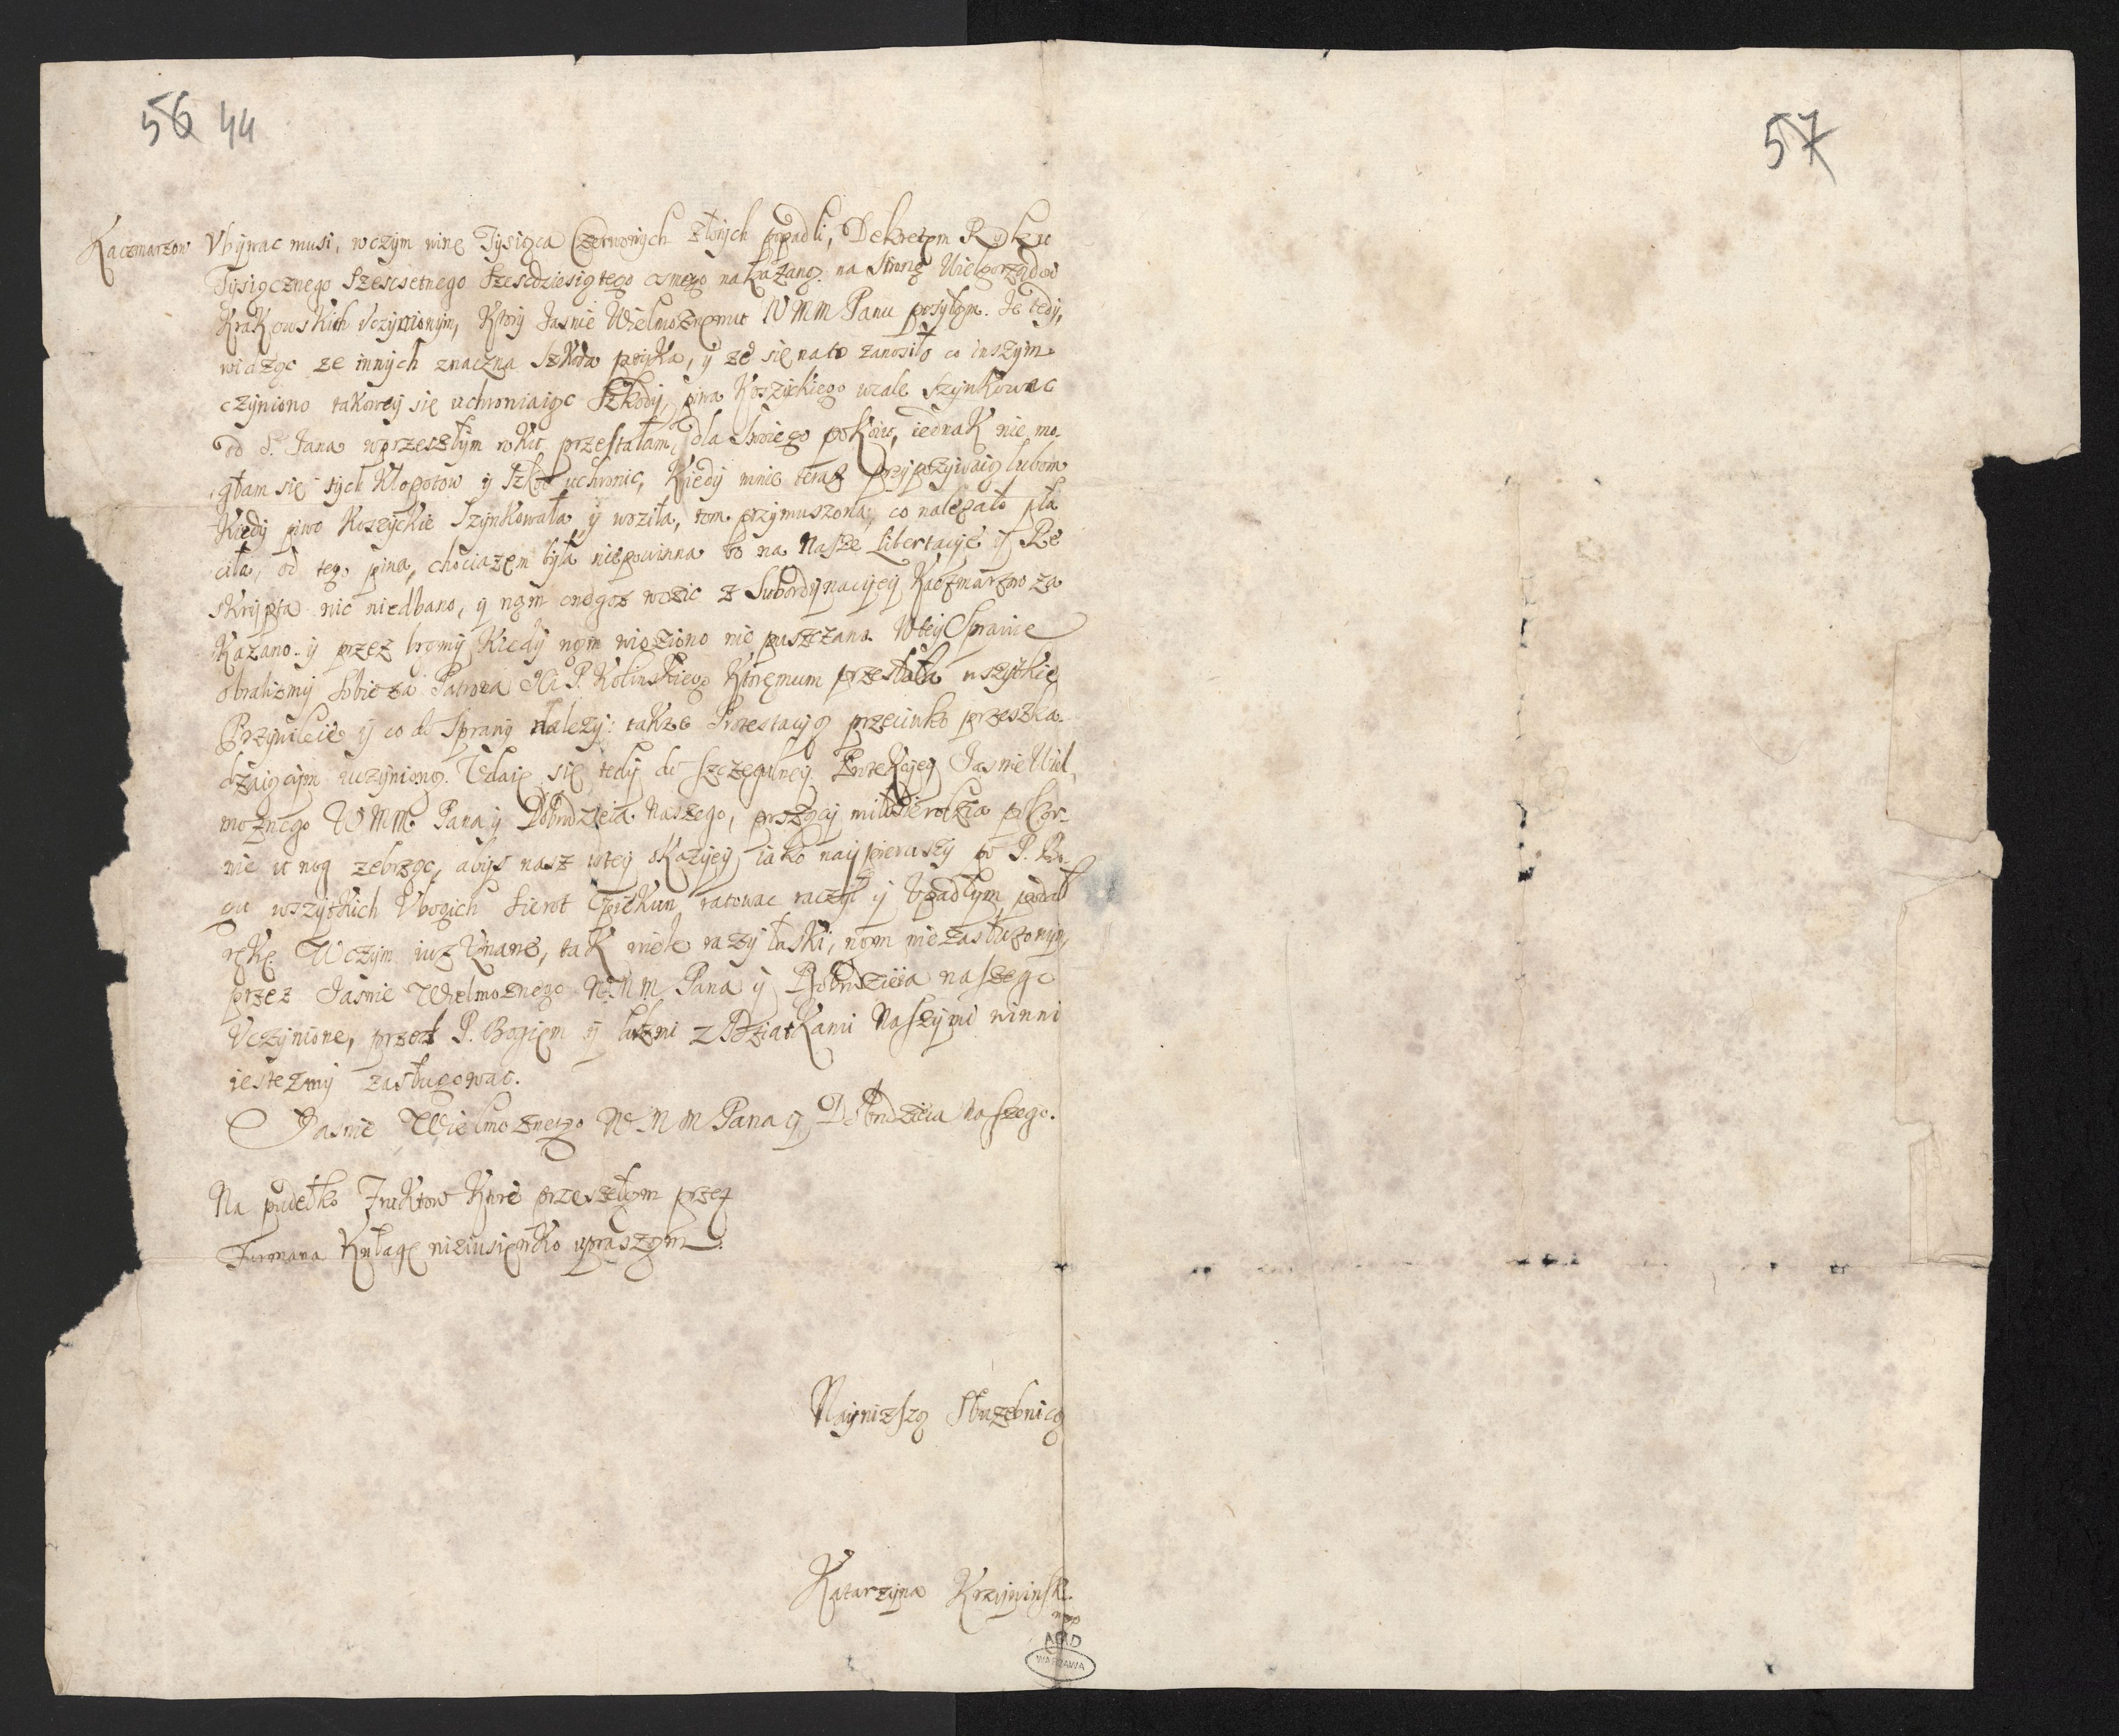 56 44
57
Kaczmarzow Vbywac musi, wczym winę Tysiąca Czerwonych złotych popadli, Dekretem Roku
Tysiącznego Szescsetnego Szescdziesiątego osmego nakazaną. na Stronę Wielgorządow
Krakowskich Vczynionym, Ktory Jasnie Wielmoznemu WMM Panu posyłam. Ja tedy,
widząc ze innych znaczna Szkoda potyka, y ze się na to zanosiło co inszym
czyniono takowey się uchroniaiąc Szkody, piwa Koszyckiego wcale Szynkowac
od S. Jana wprzeszłym roku przestałam, dla Swoiego pokoiu, iednak nie mo-
głam się tych Kłopotow y Szkod uchronic, Kiedy mnie teraz lubom
Kiedy piwo Koszyckie Szynkowała y woziła, tom przymuszona, co nalezało pła
ciła, od tego piwa, chociazem była niepowinna bo na Nasze Libertacyie y Re
skrypta nic niedbano, y nąm onegoz wozic z Subordynacyey Kaczmarzow za
Kazano. y przez bramy Kiedy nąm wieziono nie puszczano. Wtey Sprawie
obralismy Sobie za Patrona P. Kolinskiego Ktoremum przesłała wszytkie
Przywileie y co do Sprawy nalezy: takze Protestacyą przeciwko przeszka-
dzaiącym uczynioną. Udaię się tedy do szczegulney Protekcyey Jasnie Wiel
moznego WMM Pana y Dobrodzieia Naszego, miłosierdzia pokor-
nie u nog zebrząc, abys nasz wtey okazyey iako naypierwszy po P. Bo-
gu wszytkich Vbogich Sierot Opiekun ratowac raczył y Upadłym podał
rękę. Wczym iuz Vznane, tak wiele razy łaski, nąm niezasłuzonym,
przez Jasnie Wielmoznego WMM Pana y Dobrodzieia naszego
Vczynione, przed P. Bogiem y ludzmi z Dziatkami Naszymi winni
iestezmy zasługowac.
Jasnie Wielmoznego WMM Pana y Dobrodzieia Naszego.
Na pudełko Fruktow Ktore przesełąm przez
Furmana Kułagę niziusienko uprasząm.
Nayniższą Słuzebnicą
Katarzyna Krzywinsk
mpp
AGAD
WARSZAWA